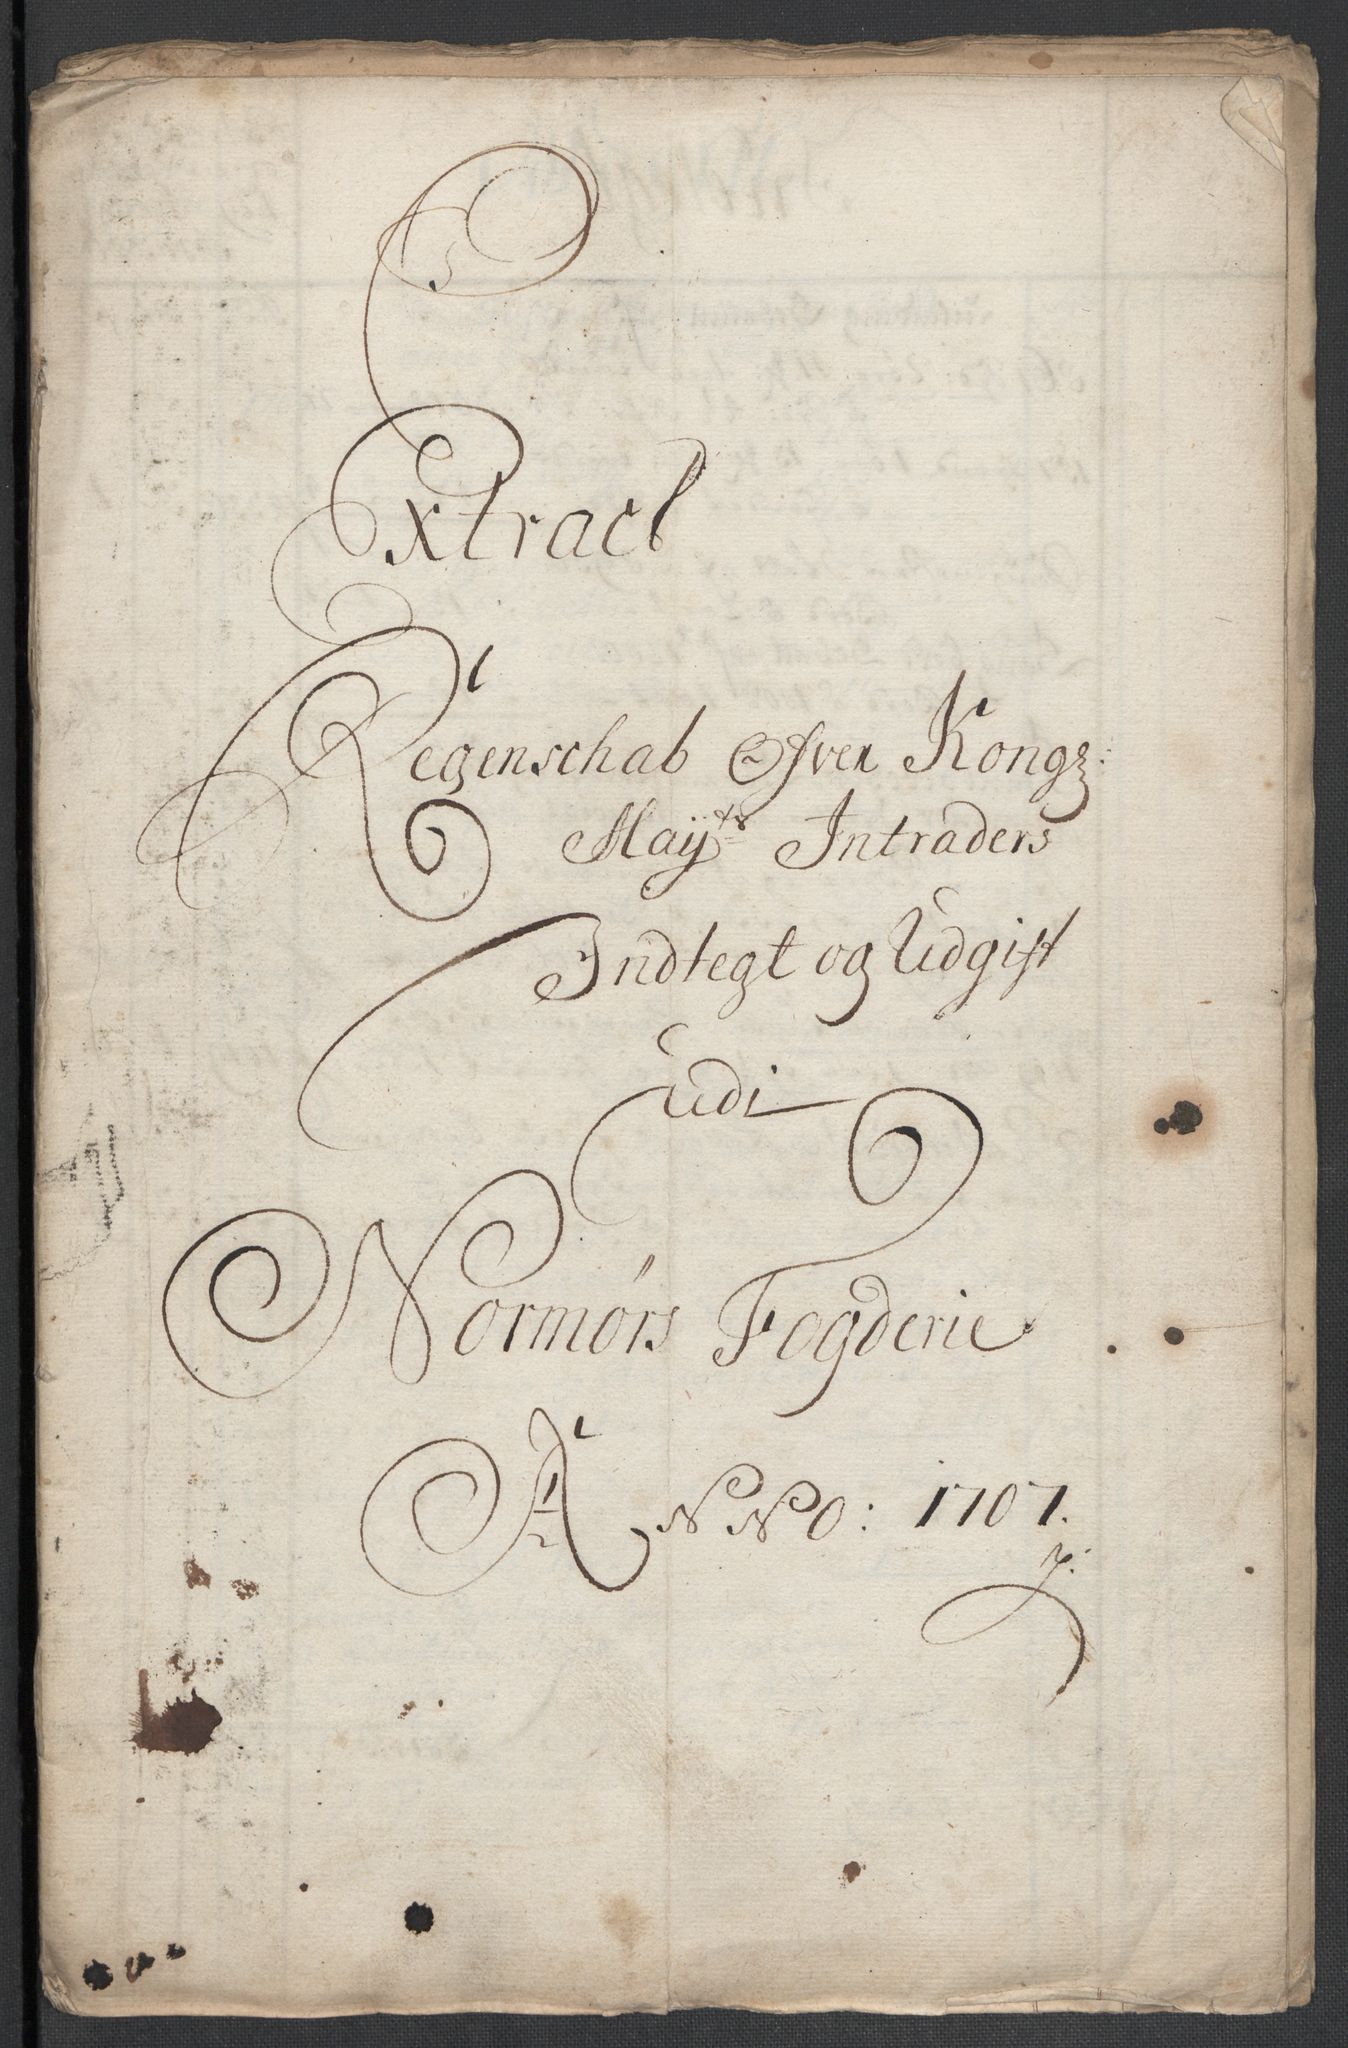 Extract
Regenschab Ofver Kongz:
Maÿts Intraders
Indtegt og Udgift
Udi
Normørs Fogderie
ANNO: 1707.